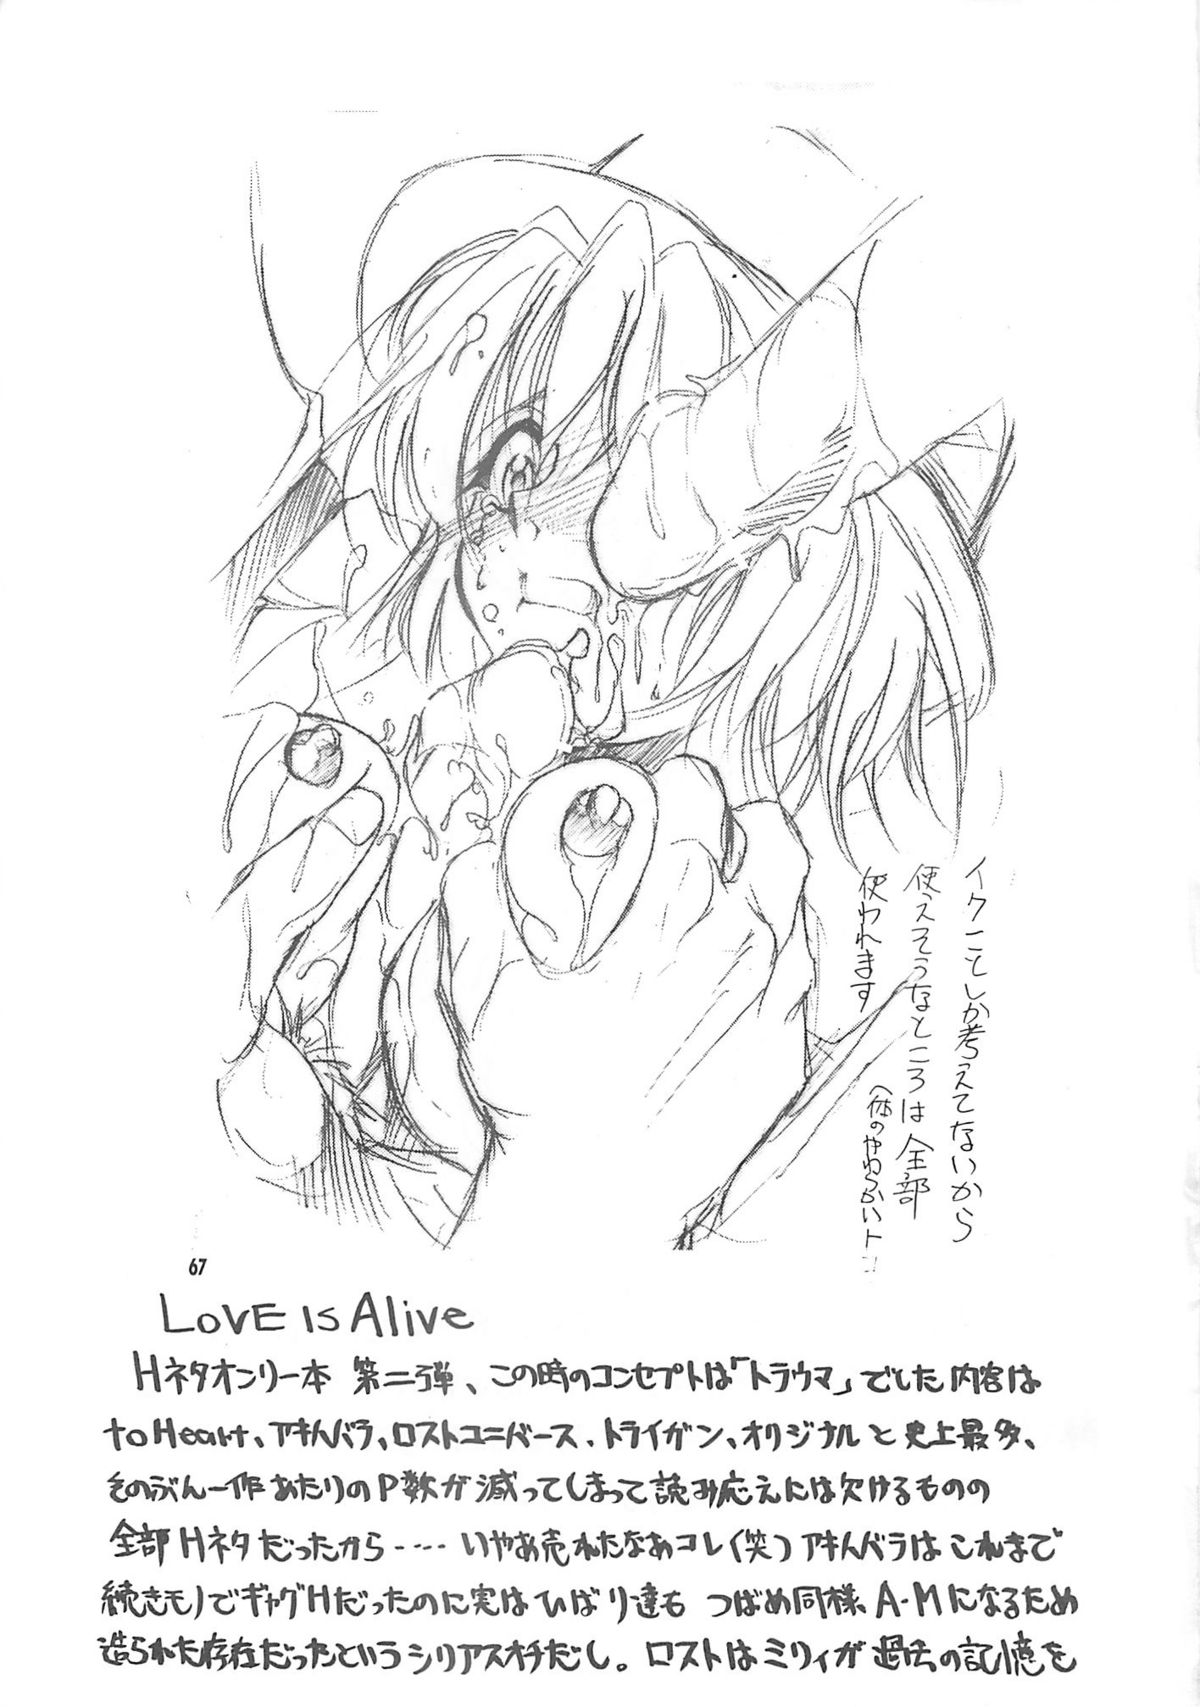 イクことしか考えてないから
使えそうなところは全部
使われます
67
LOVE IS Alive
Hネタオンリー本 第二弾、この時のコンセプトは「トラウマ」でした内容は
to Heart、アキハバラ、ロストユニバース、トライガン、オリジナルと史上最多、
そのぶん一作あたりのP数が減ってしまって読み応えには欠けるものの
全部Hネタだったから‥‥いやあ売れたなあコレ(笑)アキハバラはこれまで
続きモノでギャグHだったのに実はひばり達も つばめ同様、A・Mになるため
造られた存在だったというシリアスオチだし。ロストはミリィが過去の記憶を